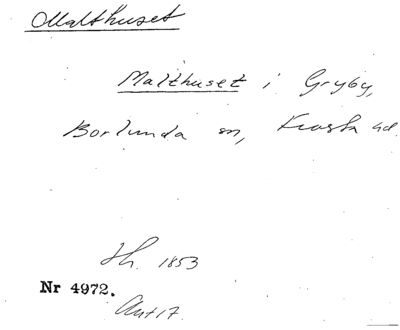 Malthuset
Malthuset i Gryby,
Borlunda sn, Frosta hd.
Hh. 1853
Nr 4972.